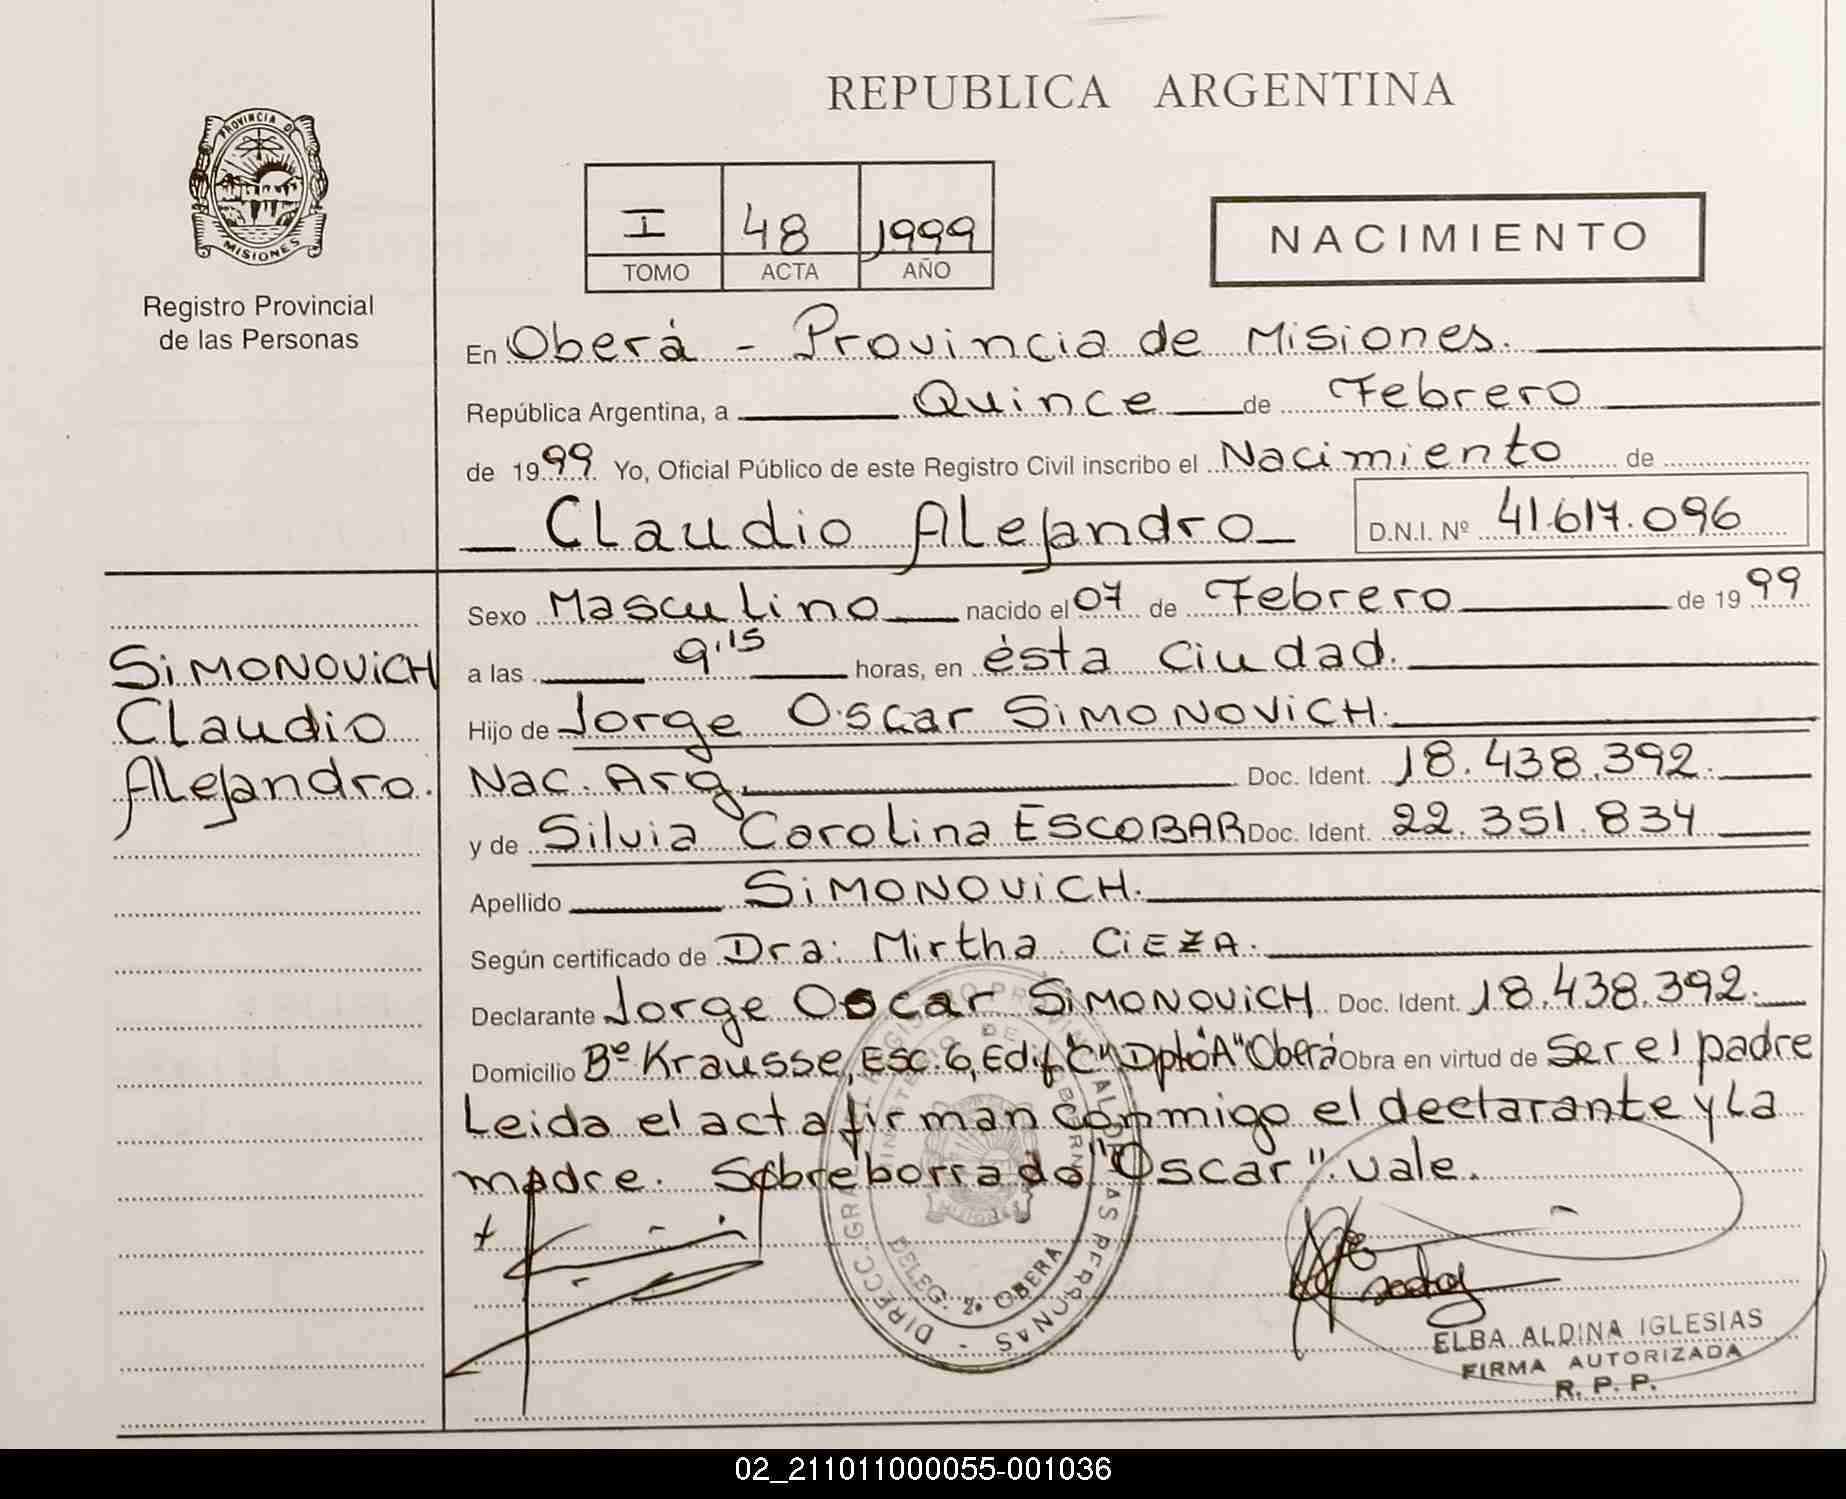 PROVINCIA DE
MISIONES
Registro Provincial
de las Personas
REPUBLICA ARGENTINA
I 48 1999
TOMO ACTA AÑO
NACIMIENTO
En Oberá - Provincia de Misiones.
República Argentina, a Quince de Febrero
de 1999 Yo, Oficial Público de este Registro Civil inscribo el Nacimiento de
Claudio Alejandro D.N.I. Nº 41.617.096
SiMONOViCH
Claudio
Alejandro.
Sexo Masculino nacido el 07 de Febrero de 1999
a las 9,15 horas, en ésta Ciudad.
Hijo de Jorge Oscar SiMONOViCH.
Nac. Arg. Doc. Ident. 18.438.392.
y de Silvia Carolina ESCOBAR Doc. Ident. 22.351.834
Apellido SiMONOViCH.
Según certificado de Dra: Mirtha CiEZA.
Declarante Jorge Oscar SiMONOViCH Doc. Ident. 18.438.392.
Domicilio Bº Krausse, Esc. 6, Edif "C" Dpto "A" Oberá Obra en virtud de ser el padre
Leida el acta firman conmigo el declarante y la
madre. Sobreborrado "Oscar". vale.
DELEG. 2ª OBERA
ELBA ALDINA IGLESIAS
FIRMA AUTORIZADA
R. P. P.
02_211011000055-001036